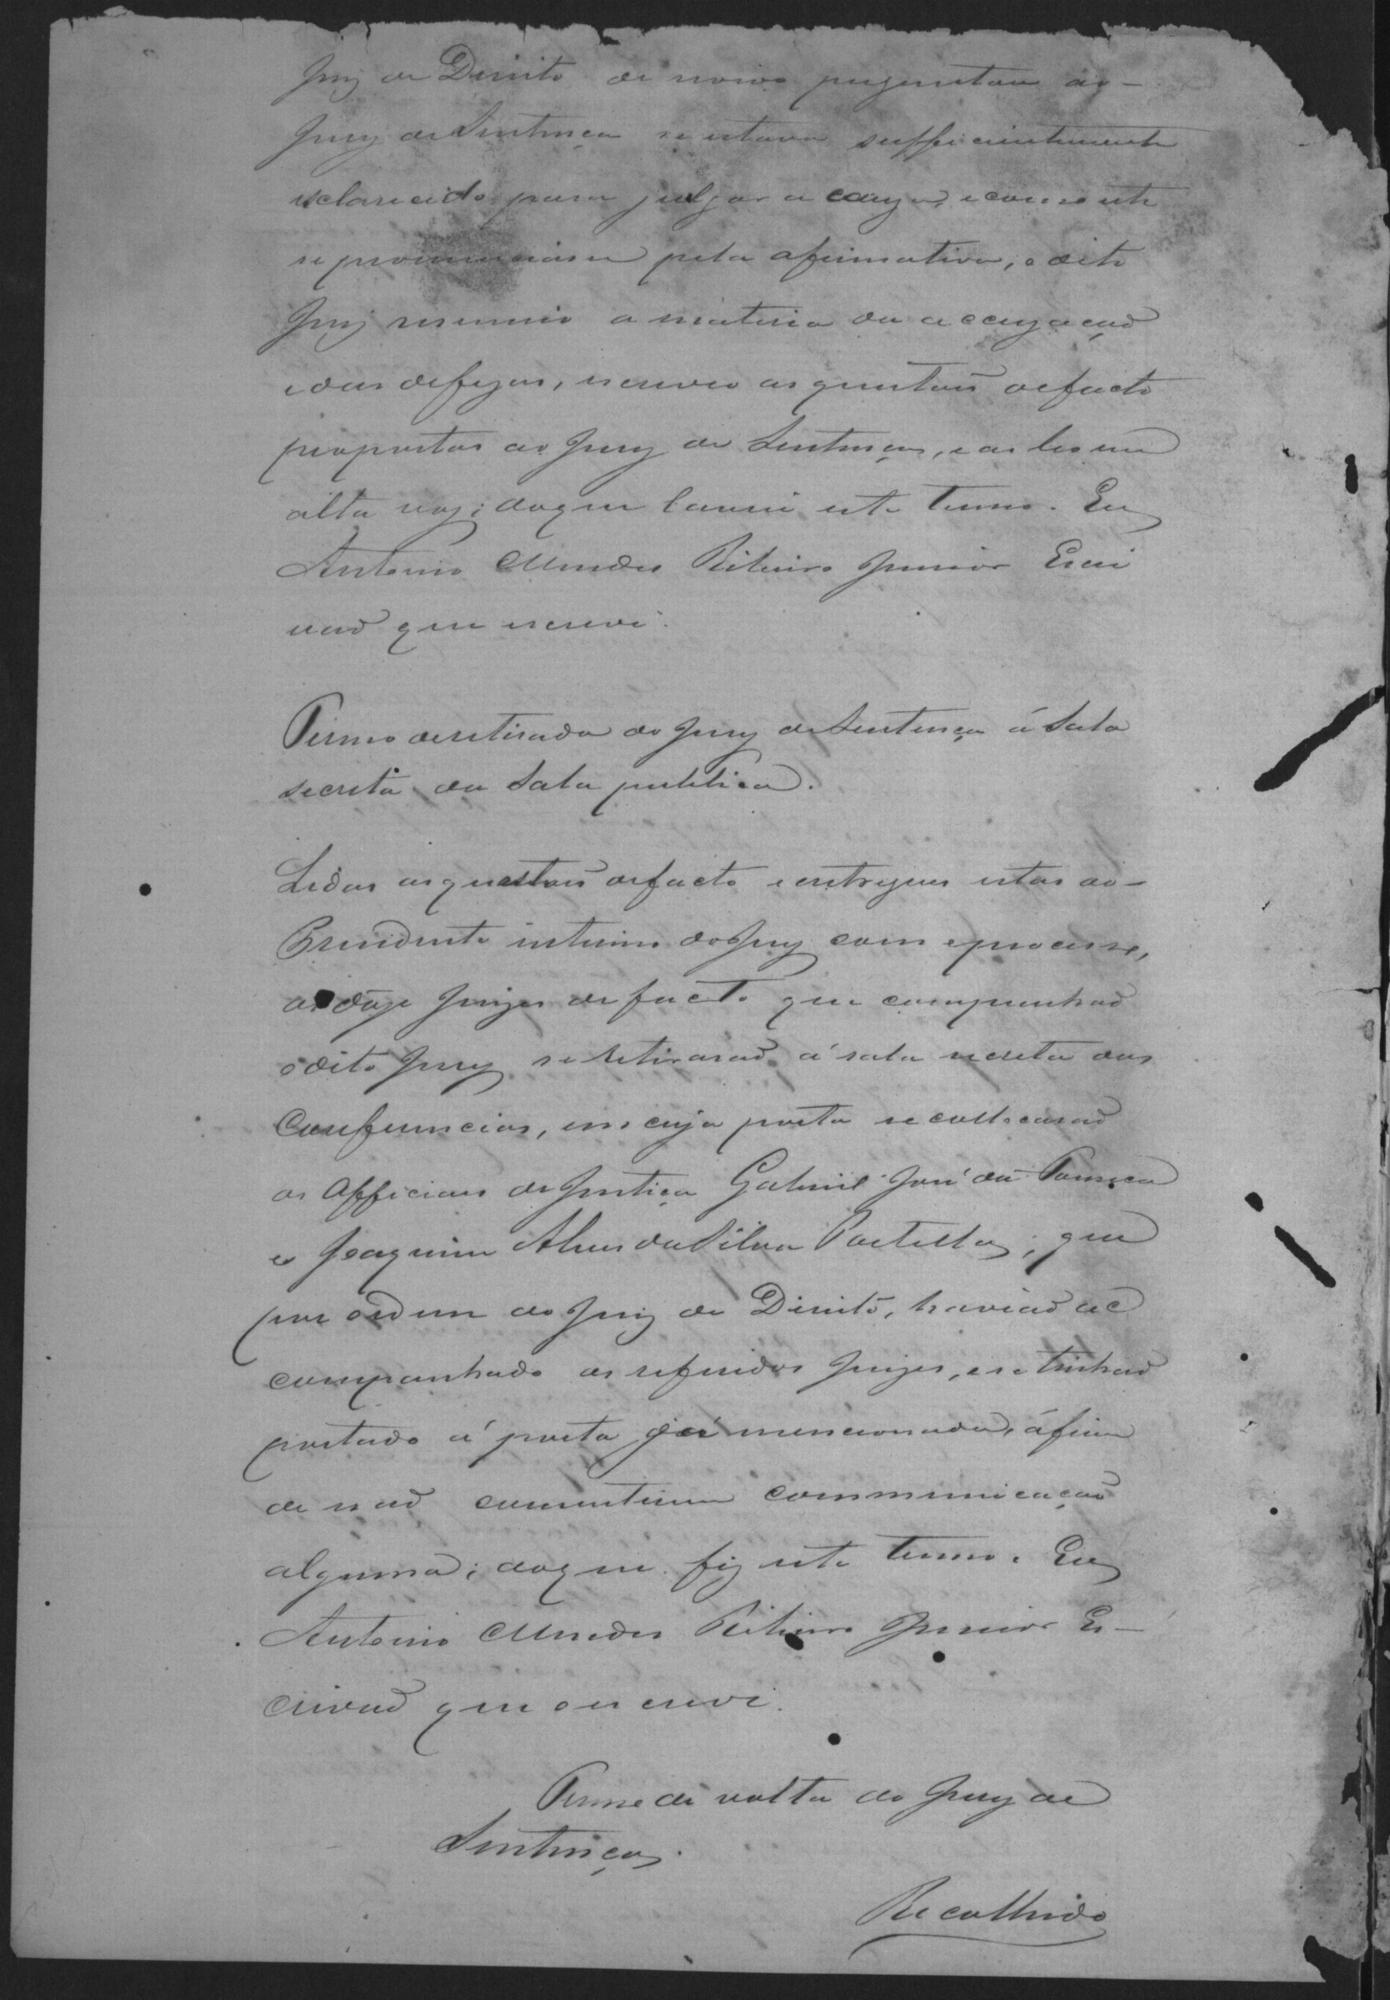 Juiz de Direito de novo perguntou ao-
Jury de Sentença se estava sufficientemente
esclarecido para julgar a cauza, e como este
se pronunciasse pela afirmativa, o dito
Juiz resumio a materia da accuzação
e das defezas, escreveo as questoes de facto
propostas ao Jury de Sentença, e as leo em
alta voz; do que lavrei este termo. Eu
Antonio Mendes Ribeiro Junior Escri
vaõ que escrevi.
Termo de retirada do Jury de Sentença á Sala
secreta da Sala publica.
Lidas as questoẽs de facto e entregues estas ao-
Presidente interino do Jury com o processo,
os doze Juizes de facto que compunhaõ
o dito Jury se retiraraõ á sala secreta das
Conferencias, em cuja porta se collocaraõ
os Officiaes de Justiça Gabriel José da Fonseca
e Joaquim Alves da Silva Portella; que
por ordem do Juiz de Direito, haviaõ ac
companhado os referidos Juizes, e se tinhaõ
postado á porta já mencionada, áfim
de naõ consentirem communicaçaõ
alguma; do que fiz este termo. Eu
Antonio Mendes Ribeiro Junior Es-
crivaõ que o escrevi.
Termo de volta do Jury de
Sentença.
Recolhido